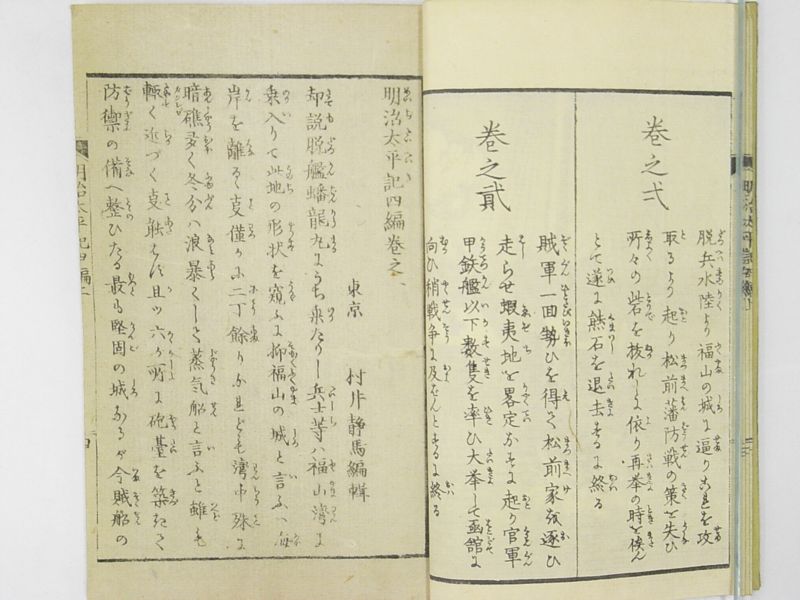 巻之弌
脱兵水陸より福山の城に逼り是を攻
取るより起り松前藩防戦の策を失ひ
所々の砦を抜れしに依り再挙の時を俟ん
とて遂に熊石を退去するに終る
巻之貳
賊軍一回勢ひを得て松前家を逐ひ
走らせ蝦夷地を畧定かするに起り官軍
甲鉄艦以下数隻を率ひ大挙して函館に
向ひ稍戦争に及ばんとするに終る
明治太平記四編巻之
東京 村井静馬編輯
却説脱艦蟠龍丸にうち乗たりし兵士等ハ福山湾に
乗入りて此地の形状を窺ふに抑福山の城と言ふハ海
岸を離るゝ事僅かに二丁餘りかれども湾中殊に
暗礁多く冬分ハ浪暴くして蒸気船と言ふと雖も
輙く近づく事能はず且ツ六か所に砲臺を築きて
防禦の備へ整ひたる最も堅固の城なるが今賊船の
明治太平記四編